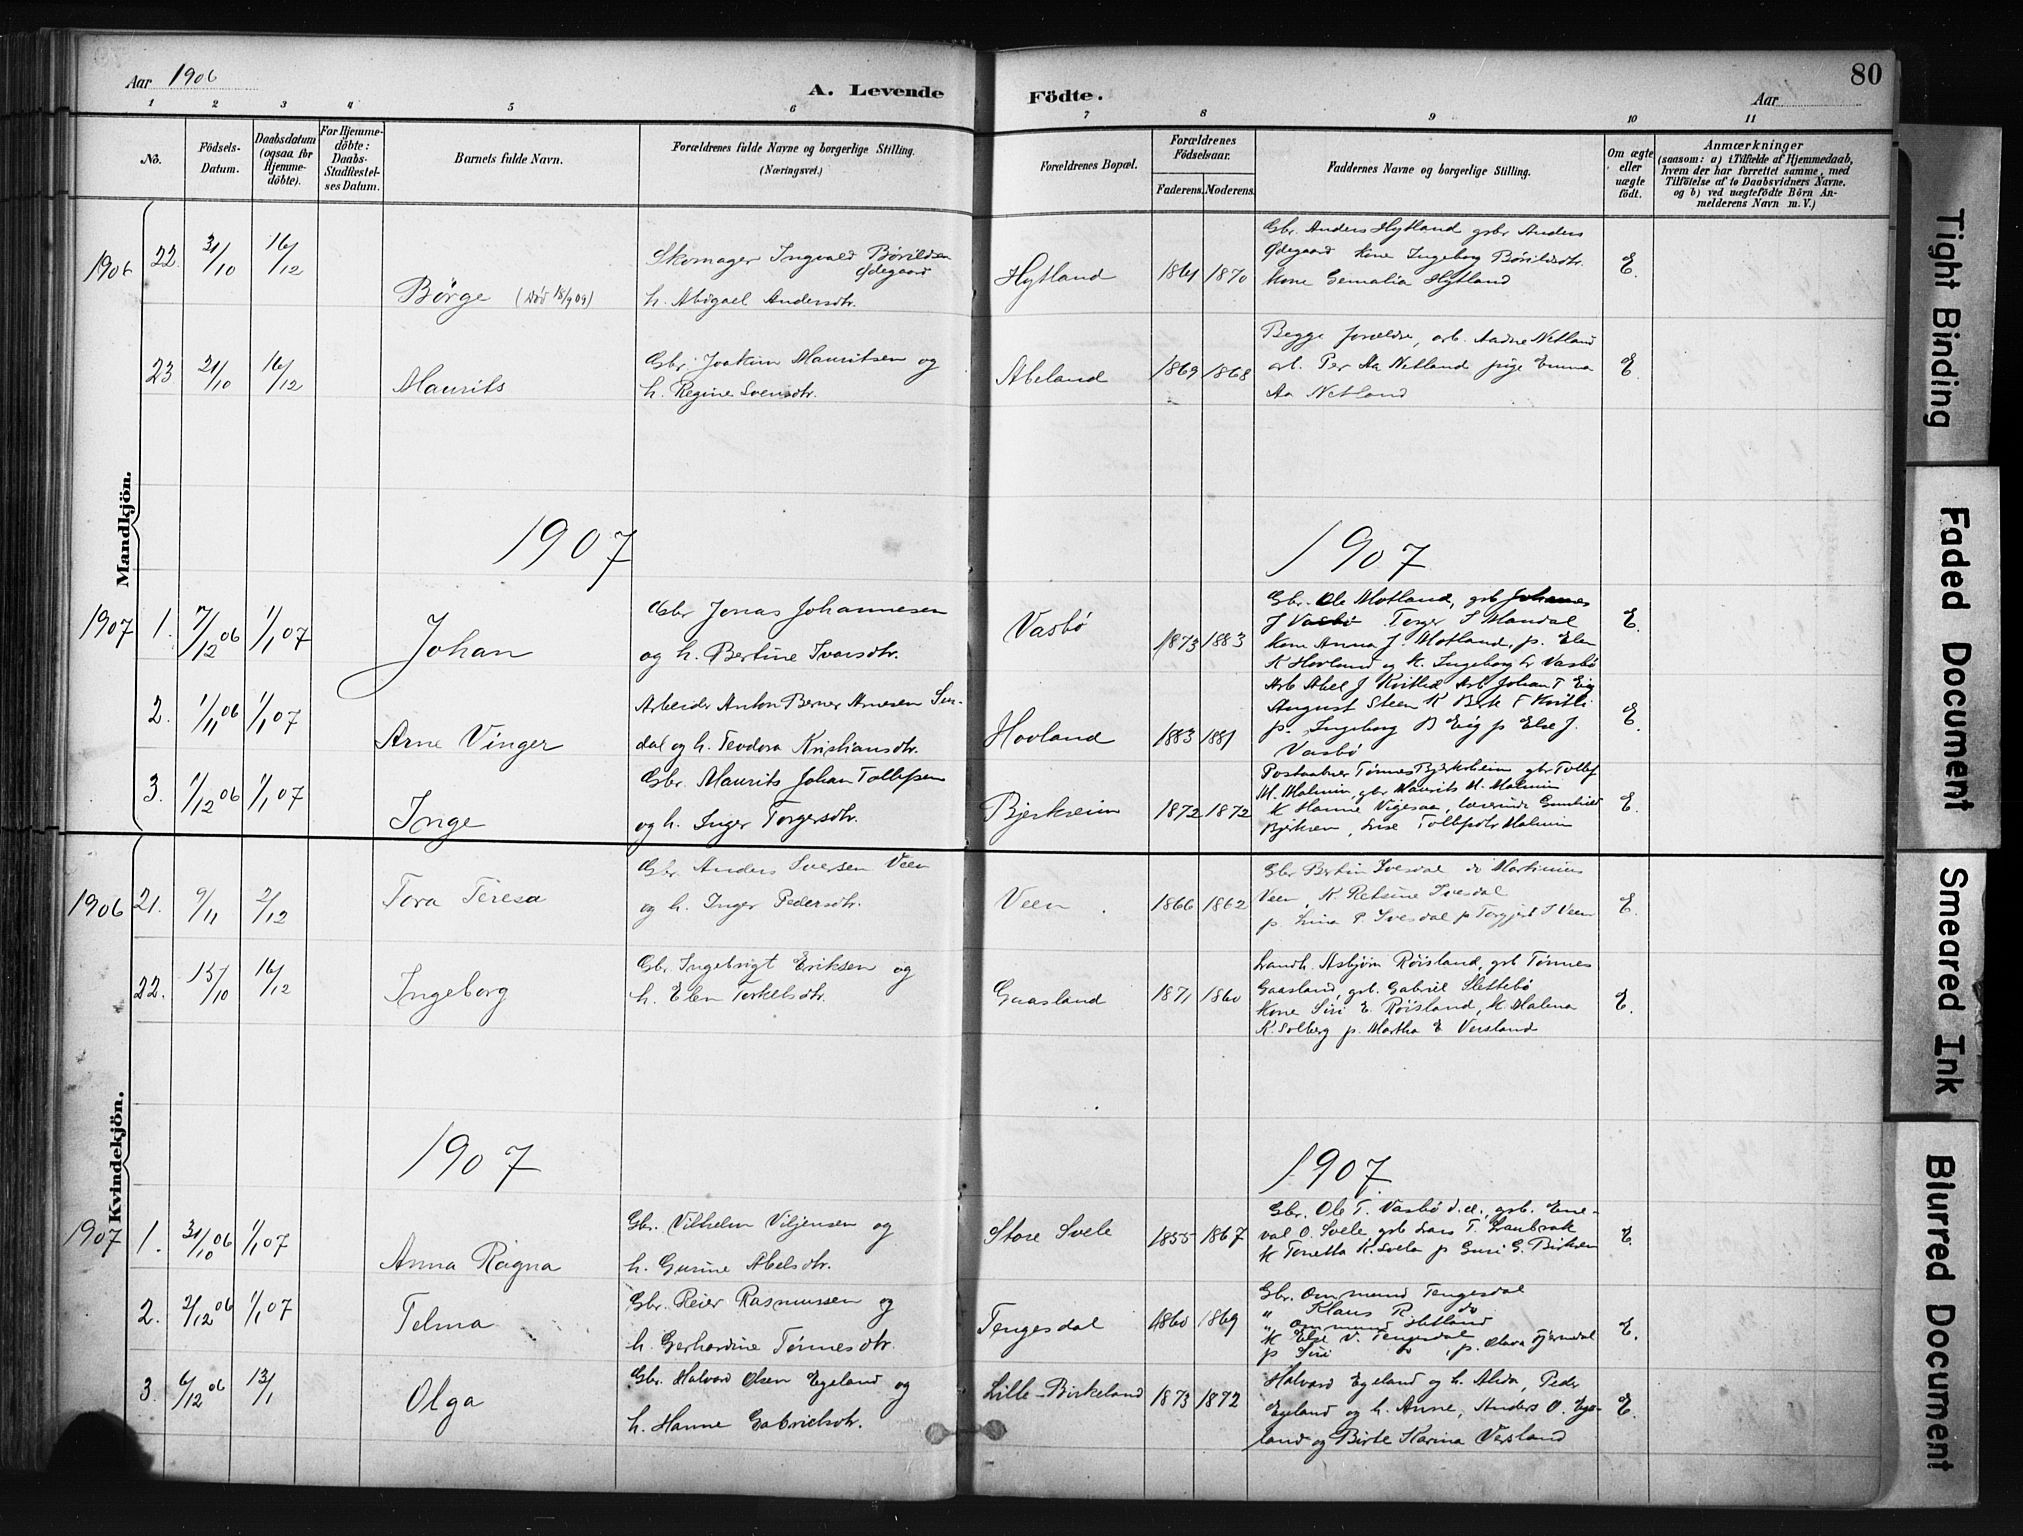 Aar 1906
A. Levende
Födte.
80
Aar
1 2 3 4 5 6 7 8 9 10 11
No.
Födsels-
Datum.
Daabsdatum
(ogsaa for
Hjemme-
döbte).
For Hjemme-
döbte:
Daabs-
Stadfæstel-
ses Datum.
Barnets fulde Navn.
Forældrenes fulde Navne og borgerlige Stilling.
(Næringsvei.)
Forældrenes Bopæl.
Forældrenes
Födselsaar.
Faderens. Moderens.
Faddernes Navne og borgerlige Stilling.
Om ægte
eller
uægte
födt.
Anmærkninger
(saasom: a) i Tilfælde af Hjemmedaab,
hvem der har forrettet samme, med
Tilföielse af to Daabsvidners Navne,
og b) ved uægtefödte Börn An-
melderens Navn m. V.)
Mandkjön.
1906 22. 31/10 16/12
Børge (død 18/9 09)
Skomager Ingvald Bårildsen
Ødegaard
h. Abigael Andersdtr.
Hytland 1861 1870
Gbr. Anders Hytland gbr Anders
Ødegaard Kone Ingeborg Bårildsdtr.
Kone Hytland
E.
23 21/10 16/12
Maurits
Gbr. Joakim Mauritsen og
h. Regine Svensdtr.
Abeland 1869 1868
Begge forældre, arb. Aadne Netland
arb. Per Aa Netland pige Emma
Aa Netland
E.
1907 1907
1907 1. 7/12 06 1/1 07
Johan
Gbr Jonas Johannesen
og h. Bertine Ivarsdtr.
Vasbø 1873 1883
Gbr. Ole Motland, gbr Johannes
J Vasbø Torger S Mandal
Kone Anna J. Motland, p. Elen
K Hovland og K. Ingeborg Vasbø
E.
2. 1/11 06 1/1 07
Arne Vinger
Arbeider Anton Berner Arnesen Sin-
dal og h. Teodora Kristiansdtr.
Hovland 1883 1881
Arb Abel J Kvitlid Arb Johan T Eig
August Steen K Berte F
p. Ingeborg B Eig p Else J.
Vasbø
E.
3. 1/12 06 1/1 07
Inge
Gbr. Maurits Johan Tollefsen
og h. Inger Torgersdtr.
Bjerkreim 1872 1872
Postaabner Tønnes Bjerkreim gbr Tollef
M. Malmin, gbr Maurits M. Malmin
K Hanne Vigesaa, lærerinde Gunhild
Bjerkrem, Tollefsdtr Malmin
E.
Kvindekjön.
1906 21. 9/11 2/12
Tora Teresa
Gbr Anders Sivesen Veen
og h. Inger Pedersdtr.
Veen 1866 1862
Gbr Bertin Ivesdal do Martinius
Veen, K Retsine Ivesdal
p. Lina P. Ivesdal p Torgjert S Veen
E.
22. 15/10 16/12
Ingeborg
Gbr. Ingebrigt Eriksen og
h. Elen Torkelsdtr.
Gaasland 1871 1860
Landh. Asbjørn Røisland, gbr Tønnes
Gaasland, gbr. Gabriel Slettebø
Kone Siri E. Røisland, K Malena
K. Solberg p. Martha E Versland
E.
1907 1907
1907 1. 31/10 06 1/1 07
Anna Ragna
Gbr. Vilhelm Viljensen og
h. Gurine Abelsdtr.
Store Svele 1855 1867
Gbr. Ole T. Vasbø d.e., gbr. Ene-
val O. Svele gbr Lars T.
K Tonetta K. Svela p Guri G. Birkrem
E.
2. 2/12 06 1/1 07
Telma
Gbr. Reier Rasmussen og
h. Gerhardine Tønnesdtr.
Tengesdal 1860 1869
Gbr. Ommund Tengesdal
" Klaus R do
" Ommund Hetland
K Else V. Tengesdal
p Siri do, p. Olava Tjørndal
E.
3. 6/12 06 13/1
Olga
Gbr. Halvard Olsen Egeland og
h. Hanne Gabrielsdtr.
Lille-Birkeland 1873 1872
Halvard Egeland og h. Alida, Peder
Egeland og h. Anne, Anders O. Ege-
land og Birte Karina Versland
E.
Tight Binding
Faded Document
Smeared Ink
Blurred Document